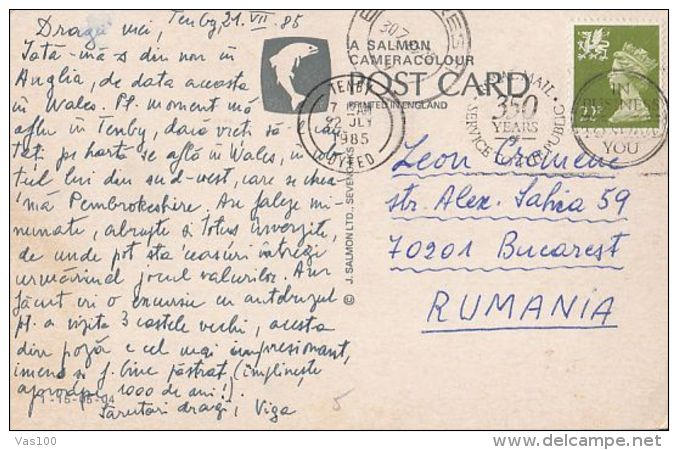 Tenby, 21.VII.85
Dragii mei,
Iată-mă-s din nou în
Anglia, de data aceasta
în Wales. Pt. moment mă
aflu în Tenby, dacă vreți să-l cău-
tați pe hartă se află în Wales, în col-
țul lui din sud-west, care se chea-
mă Pembrokeshire. Au faleze mi-
nunate, abrupte și totuși înverzite,
de unde pot sta ceasuri întregi
urmărind jocul valurilor. Am
făcut ieri o excursie cu autobuzul
pt. a vizita 3 castele vechi, acesta
din poză e cel mai impresionant,
imens și f. bine păstrat (împlinește
aproape 1000 de ani!).
Sărutări dragi, Viga
1-15-05-04
A SALMON
CAMERACOLOUR
POST CARD
PRINTED IN ENGLAND
© J. SALMON LTD., SEVENOAKS
TENBY
22 JLY
1985
DYFED
350
YEARS
SERVICE
PUBLIC
IN
BUSINESS
YOU
22
Leon
str. Alex. Sahia 59
70201 Bucarest
RUMANIA
5
Vas100
www.delcampe.net